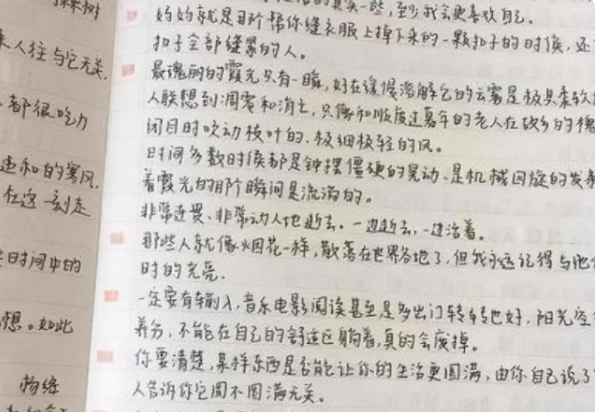 棵树
来人往与它无关,
都很吃力
违和的寒风.
在这一刻走
时间中的
想。如此
拘络
真实一些,至少我会更喜欢自己.
妈妈就是那个帮你缝衣服上掉下来的一颗扣子的时候,还
扣子全部缝紧的人。
最瑰丽的霞光只有一瞬,好在缓慢溶解它的云雾是极具柔软
人联想到凋零和消亡,只像和顺度过暮年的老人在故乡的槐
闭目时吹动枝叶的、极细极轻的风。
时间多数时候都是钟摆僵硬的晃动、是机械回旋的发条
着霞光的那个瞬间是流淌的。
非常连畏、非常动人地逝去。一边逝去,一边活着。
那些人就像烟花一样,散落在世界各地了,但我永远记得与他
时的光亮.
一定要有输入,音乐电影阅读甚至是多出门转转也好,阳光空
养分,不能在自己的舒适区躺着,真的会废掉。
你要清楚,某样东西是否能让你的生活更圆满,由你自己说了
人告诉你它圆不圆满无关。